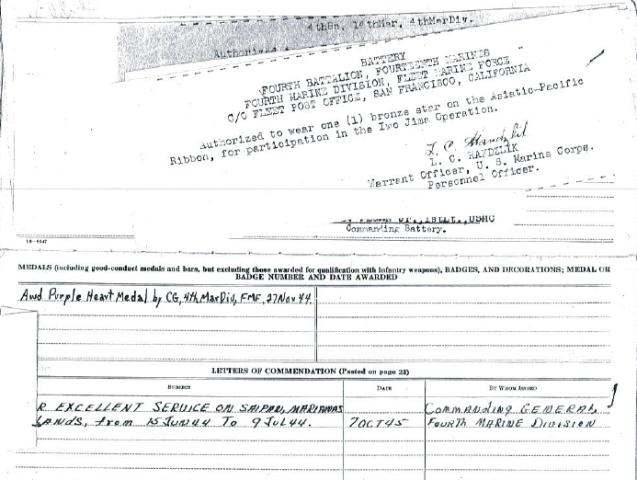 4thBn, 14thMar, 4thMarDiv.
Authorized
BATTERY
FOURTH BATTALION, FOURTEENTH MARINES
FOURTH MARINE DIVISION, FLEET MARINE FORCE
C/O FLEET POST OFFICE, SAN FRANCISCO, CALIFORNIA
Authorized to wear one (1) bronze star on the Asiatic-Pacific
Ribbon, for participation in the Iwo Jima Operation.
L. C.
L. C.
Warrant Officer, U. S. Marine Corps.
Personnel Officer.
USMC
Commanding Battery.
MEDALS (including good-conduct medals and bars, but excluding those awarded for qualification with infantry weapons), BADGES, AND DECORATIONS; MEDAL OR
BADGE NUMBER AND DATE AWARDED
Awd Purple Heart Medal by CG, 4th MarDiv, FMF, 27 Nov 44.
LETTERS OF COMMENDATION (Posted on page 23)
SUBJECT DATE BY WHOM ISSUED
R EXCELLENT SERVICE ON SAIPAN, MARIANAS COMMANDING GENERAL,
LANDS, from 15 JUN 44 TO 9 JUL 44. 7 OCT 45 FOURTH MARINE DIVISION